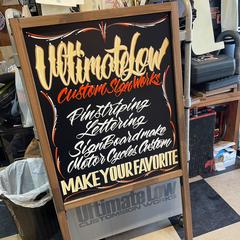 UltimateLow
Custom SignWorks
Pinstriping
Lettering
SignBoard make
Motor Cycles Custom
MAKE YOUR FAVORITE
Ultimate Low
CUSTOMSIGN WORKS